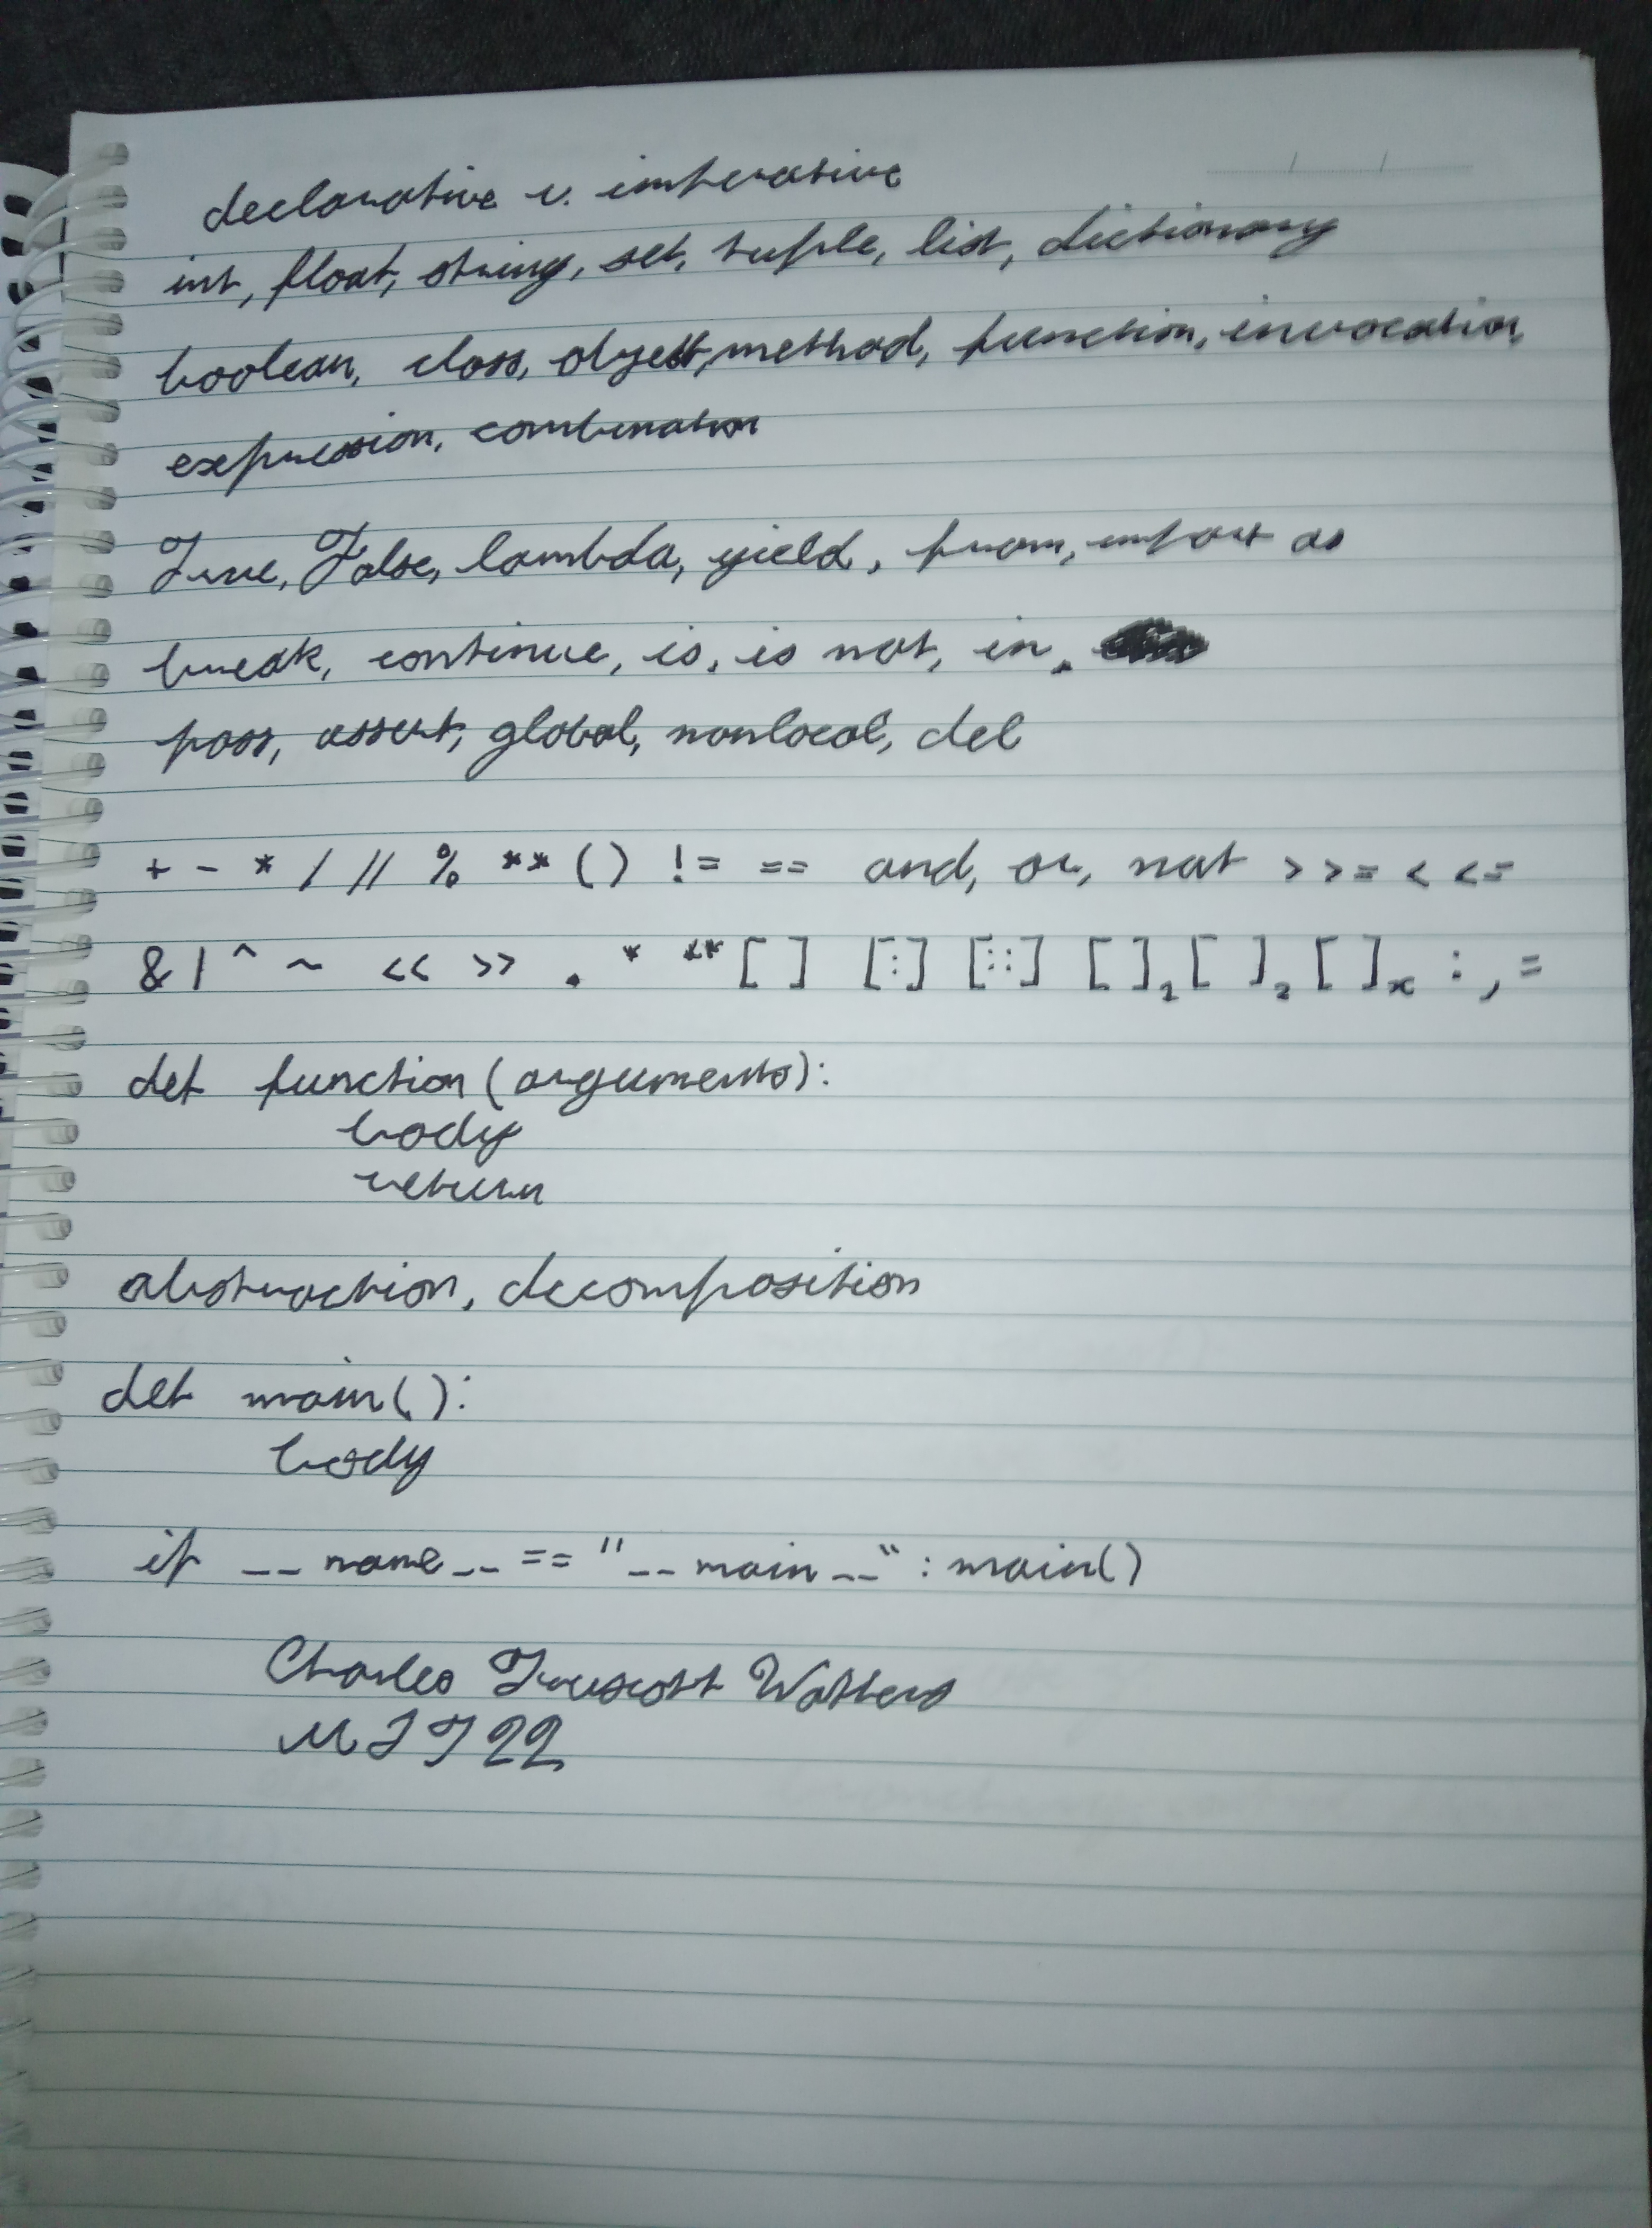 declarative v. imperative
int, float, string, set, tuple, list, dictionary
boolean, class, object, method, function, invocation,
expression, combination
True, False, lambda, yield, from, import as
break, continue, is, is not, in,
pass, assert, global, nonlocal, del
+ - * / // % ** ( ) != == and, or, not > >= < <=
& | ^ ~ << >> . * ** [ ] [:] [::] [ ]₁ [ ]₂ [ ]ₓ : , =
def function (arguments):
body
return
abstraction, decomposition
def main():
body
if __name__ == "__main__" : main()
Charles Truscott Watters
MIT 22